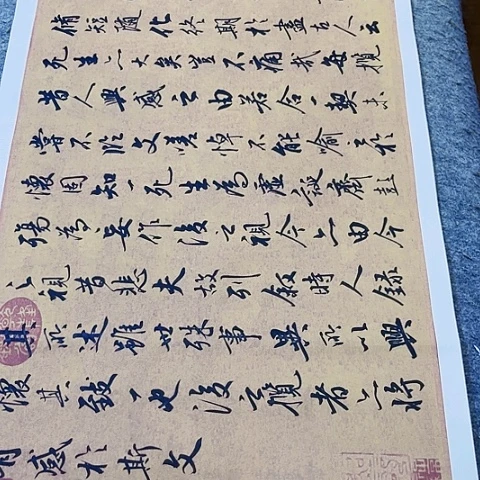 脩短隨化終期於盡古人云
死生亦大矣豈不痛哉每攬
昔人興感之由若合一契未
嘗不臨文嗟悼不能喻之於
懷固知一死生為虛誕齊彭
殤為妄作後之視今亦由今
之視昔悲夫故列敘時人錄
其所述雖世殊事異所以興
懷其致一也後之攬者亦將
有感於斯文